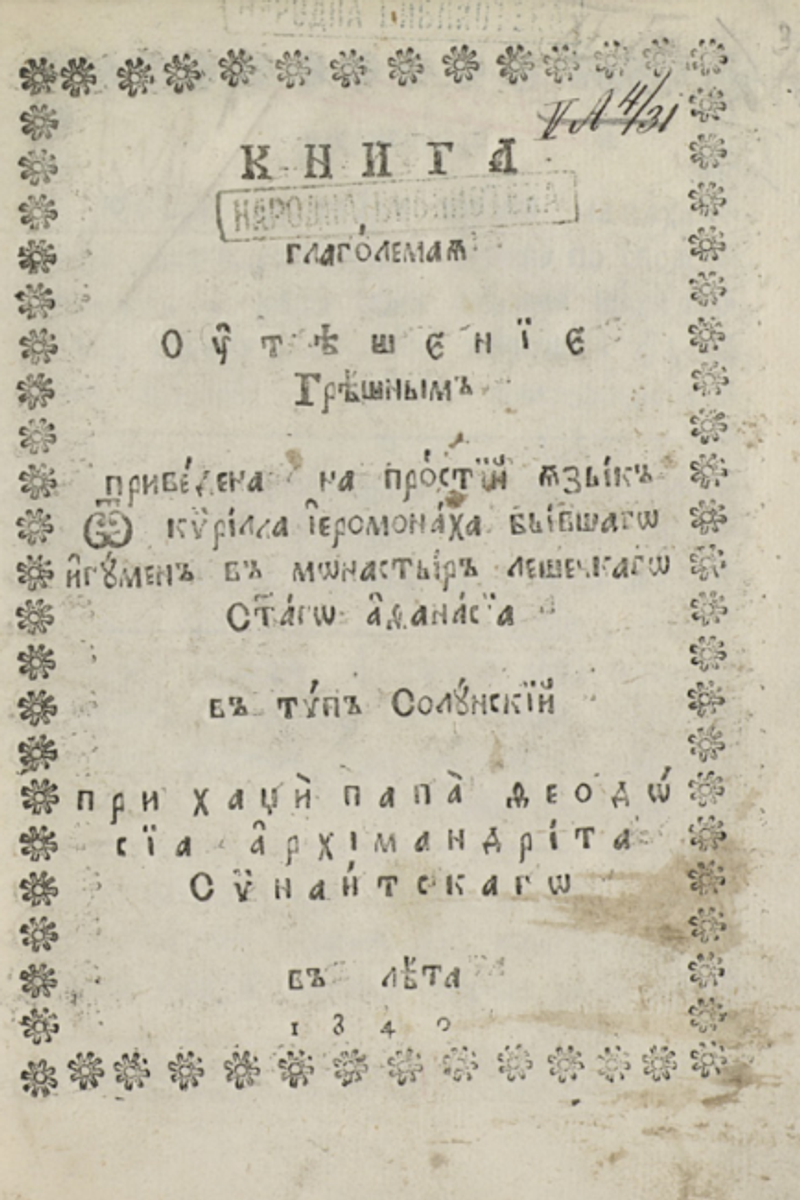 V A 4/31
КНИГА
НАРОДНА БИБЛИОТЕКА
глаго́лемаѧ
Оуⷮтѣшенїе
Грѣ́шнымъ
приве́дена на про́стїй ѧзы́къ
Ѿ кѷрі́лла і҆еромона́ха бы́вшагѡ
и҆гꙋ́менъ въ мѡнасты́ръ лешечкагѡ
Ст҃а́гѡ а҆ѳана́сїа
въ тѵ́пъ Солꙋ́нскїй
при хаџѝ папа̀ ѳеодѡ́
сїа а҆рхімандрі́та
Сѷнаи́тскагѡ
въ лѣ́та
1840